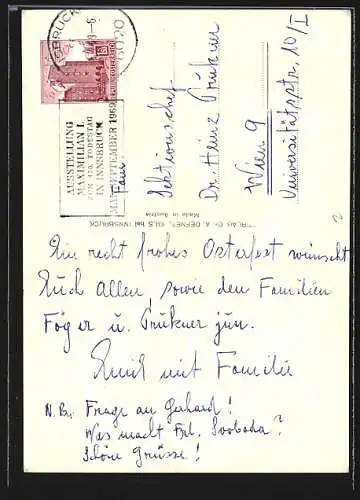 INNSBRUCK
6020
AUSSTELLUNG
MAXIMILIAN I.
ZUM 450. TODESTAG
IN INNSBRUCK
MAI-SEPTEMBER 1969
Fam.
Sektionschef
Dr. Heinz Prukner
Wien 9
Universitätsstr. 10/I
VERLAG Dr. A. DEFNER, IGLS bei INNSBRUCK
Made in Austria
Ein recht frohes Osterfest wünscht
Euch allen, sowie den Familien
Föger u. Prukner jun.
Emil mit Familie
N.B. Frage an Gerhard!
Was macht Frl. Svoboda?
Schöne Grüsse!